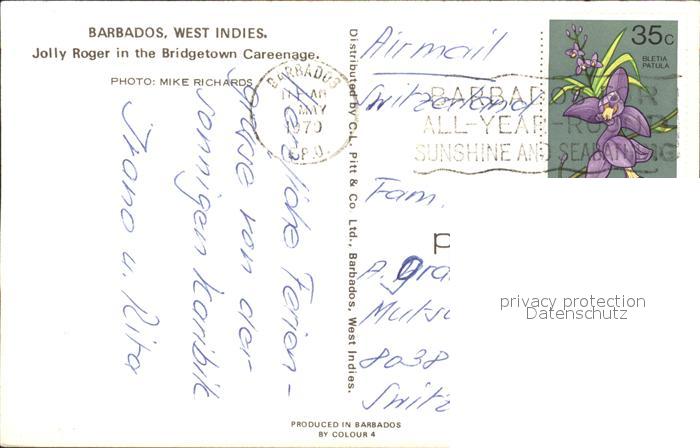 BARBADOS, WEST INDIES.
Jolly Roger in the Bridgetown Careenage.
PHOTO: MIKE RICHARDS
Herzliche Ferien-
grüsse von der
sonnigen Karibik
Ivano u. Rita
Distributed by C.L. Pitt & Co. Ltd., Barbados, West Indies.
PRODUCED IN BARBADOS
BY COLOUR 4
BARBADOS
MAY
1979
G.P.O.
BARBADOS
ALL-YEAR-
SUNSHINE AND SEABATHING
35c
BLETIA
PATULA
Airmail
Switzerland
Fam.
P
A. Gra
Mutsc
8038
Switz
privacy protection
Datenschutz